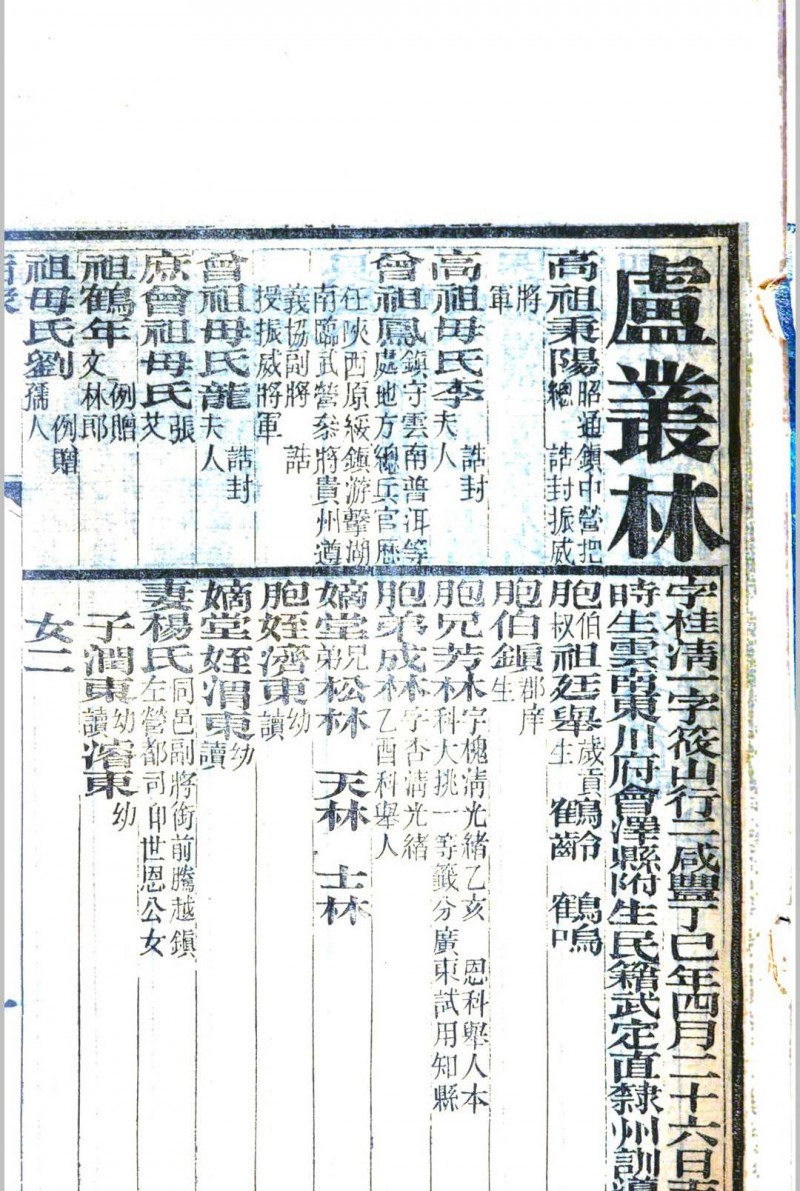 盧叢林
字桂清一字筱山行二咸豐丁巳年四月二十六日吉
時生雲南東川府會澤縣附生民籍武定直隸州訓導
高祖秉陽昭通鎮中營把
總 誥封振威
將
軍
高祖母氏李 誥封
夫人
曾祖鳳鎮守雲南普洱等
處地方總兵官歷
任陝西原綏鎮游擊湖
南臨武營參將貴州遵
義協副將 誥
授振威將軍
曾祖母氏龍 誥封
夫人
庶曾祖母氏張
艾
祖鶴年 例贈
文林郎
祖母氏劉 例贈
孺人
胞伯
叔祖廷舉歲貢
生 鶴齡 鶴鳴
胞伯鎮郡庠
生
胞兄芳林字槐清光緒乙亥 恩科舉人本
科大挑一等籤分廣東試用知縣
胞弟成林字杏清光緒
乙酉科舉人
嫡堂兄
弟松林 天林 士林
胞姪濟東幼
讀
嫡堂姪渭東幼
讀
妻楊氏同邑副將銜前騰越鎮
左營都司印世恩公女
子潤東幼
讀 濬東幼
女二